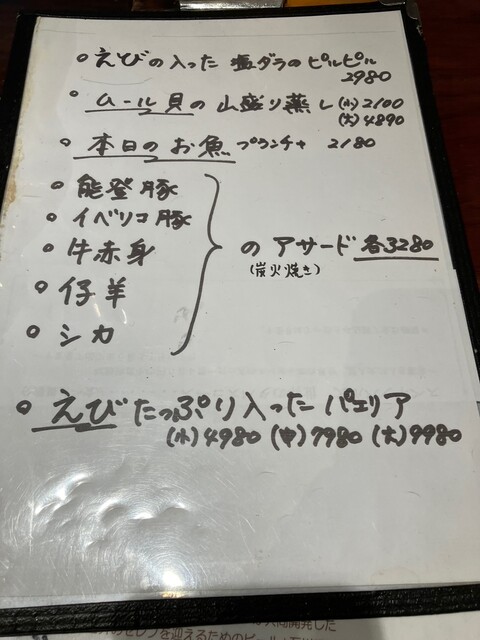 ○えびの入った 塩ダラのピルピル
2980
○ムール貝の山盛り蒸し(小)2100
(大)4890
○本日のお魚プランチャ 2180
○能登豚
○イベリコ豚
○牛赤身
○仔羊
○シカ
のアサード各3280
(炭火焼き)
○えびたっぷり入ったパエリア
(小)4980(中)7980(大)9980